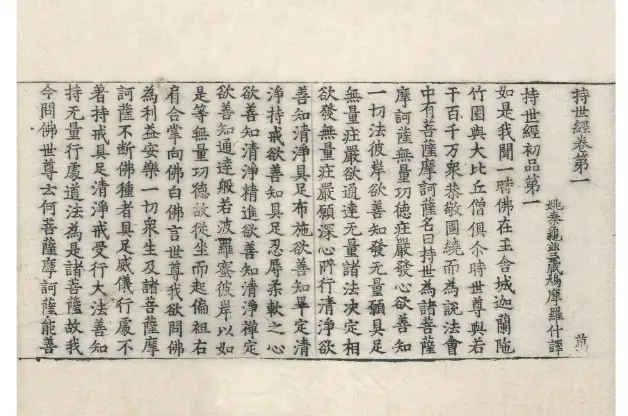 持世經卷第一
姚秦龜兹三藏鳩摩羅什譯
持世經初品第一
如是我聞一時佛在王舍城迦蘭陁
竹園與大比丘僧俱尒時世尊與若
干百千万衆恭敬圍繞而為說法會
中有菩薩摩訶薩名曰持世為諸菩薩
摩訶薩無量功德莊嚴發心欲善知
一切法彼岸欲善知發无量願具足
無量莊嚴欲通達无量諸法决定相
欲發無量莊嚴願深心所行清淨欲
善知清淨具足布施欲善知畢定清
淨持戒欲善知具足忍辱柔軟之心
欲善知清淨精進欲善知清淨禪定
欲善知通達般若波羅蜜彼岸以如
是等無量功德故從坐而起偏袒右
肩合掌向佛白佛言世尊我欲問佛
為利益安樂一切衆生及諸菩薩摩
訶薩不斷佛種者具足威儀行處不
著持戒具足清淨戒受行大法善知
持无量行處道法為是諸菩薩故我
今問佛世尊云何菩薩摩訶薩能善